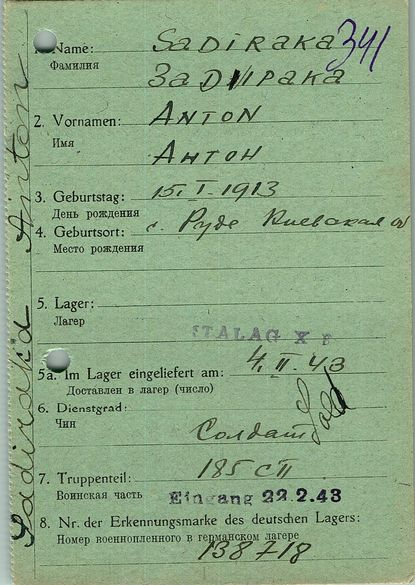 1. Name: SADIRAKA 341
Фамилия ЗАДИРАКА
2. Vornamen: ANTON
Имя
АНТОН
3. Geburtstag: 15.I.1913
День рождения
4. Geburtsort: с. Руде Киевская о
Место рождения
5. Lager:
Лагер
STALAG X B
5a. Im Lager eingeliefert am: 4.II.43
Доставлен в лагер (число)
6. Dienstgrad: Sold
Чин
Солдат
7. Truppenteil: 185 СП
Воинская часть Eingang 22.2.43
8. Nr. der Erkennungsmarke des deutschen Lagers:
Номер военнопленного в германском лагере
138718
Sadiraka Anton